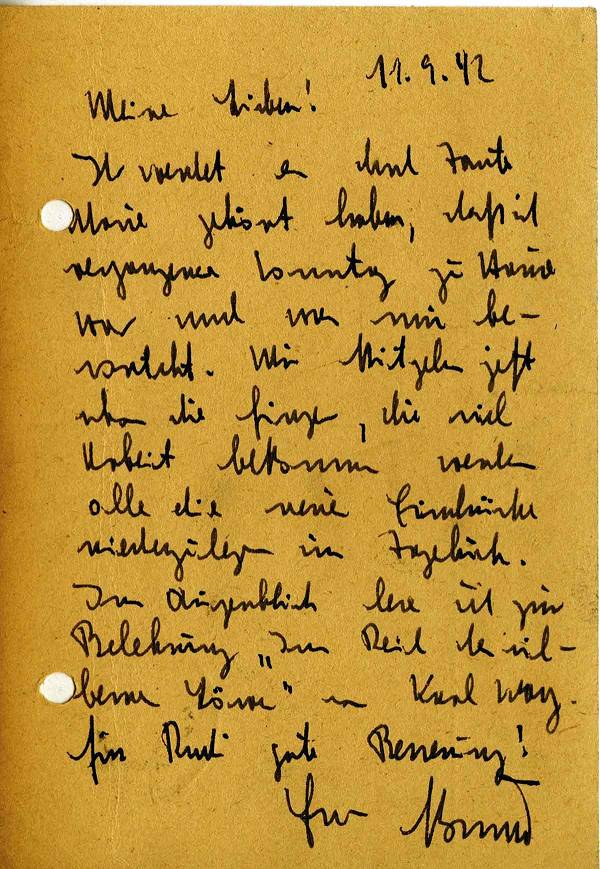 11.9.42
Meine Lieben!
Ihr werdet es durch Tante
Marie gehört haben, daß ich
vergangenen Sonntag zu Hause
war und was mir be-
vorsteht. Mir kitzeln jetzt
schon die Finger, die viel
Arbeit bekommen werden
alle die neuen Eindrücke
niederzulegen im Tagebuch.
Im Augenblick lese ich zur
Belehrung „Im Reich des sil-
bernen Löwen" von Karl May.
Für Rudi gute Besserung!
Euer